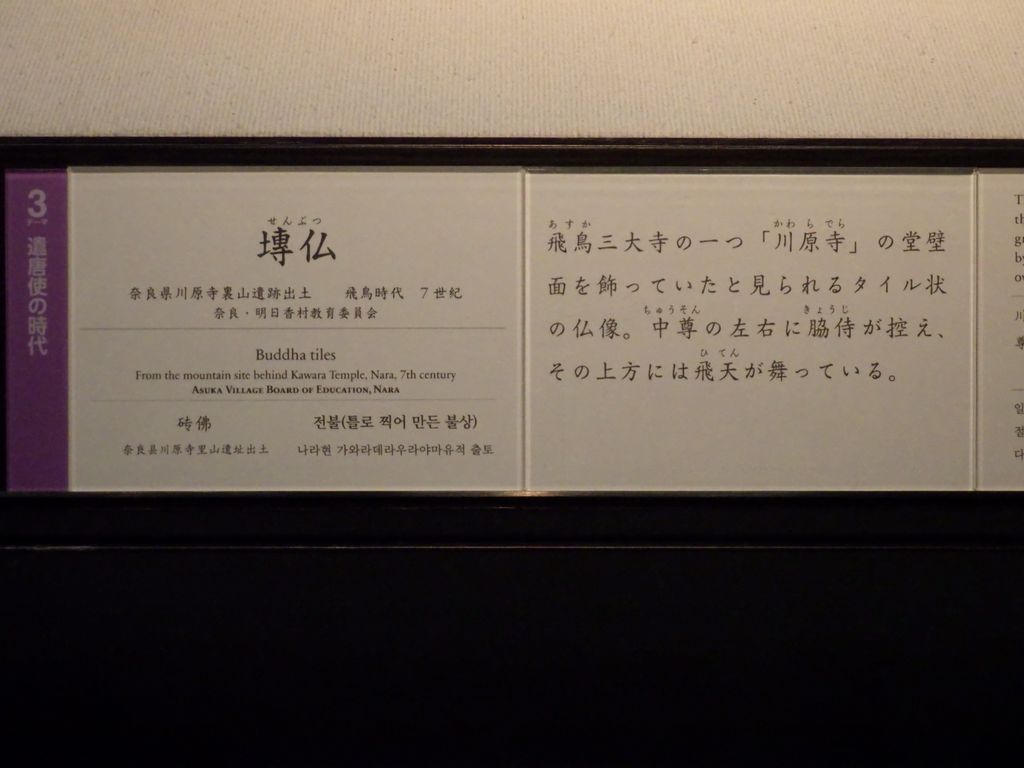 3
遣唐使の時代
せんぶつ
塼仏
奈良県川原寺裏山遺跡出土　飛鳥時代　7世紀
奈良・明日香村教育委員会
Buddha tiles
From the mountain site behind Kawara Temple, Nara, 7th century
ASUKA VILLAGE BOARD OF EDUCATION, NARA
砖佛
奈良县川原寺里山遗址出土
전불(틀로 찍어 만든 불상)
나라현 가와라데라우라야마유적 출토
あすか　かわらでら
飛鳥三大寺の一つ「川原寺」の堂壁
面を飾っていたと見られるタイル状
ちゅうそん　きょうじ
の仏像。中尊の左右に脇侍が控え、
ひてん
その上方には飛天が舞っている。